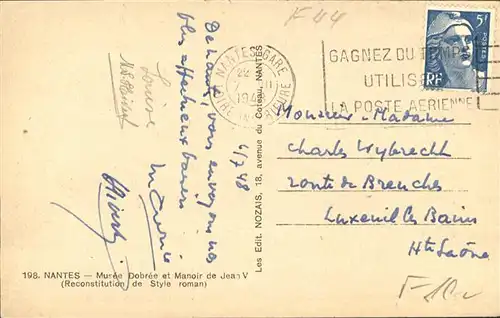 F 44
De Nantes, vous envoyons nos
plus affectueux baisers
4/7/48
Louise
198. NANTES — Musée Dobrée et Manoir de Jean V
(Reconstitution de Style roman)
Les Edit. NOZAIS, 18, avenue du Coteau, NANTES
NANTES GARE
22
LOIRE INFERIEURE
GAGNEZ DU TEMPS
UTILISEZ
LA POSTE AERIENNE
5F
POSTES
RF
Monsieur - Madame
Charles Wybrecht
route de Breuches
Luxeuil les Bains
Hte Saône